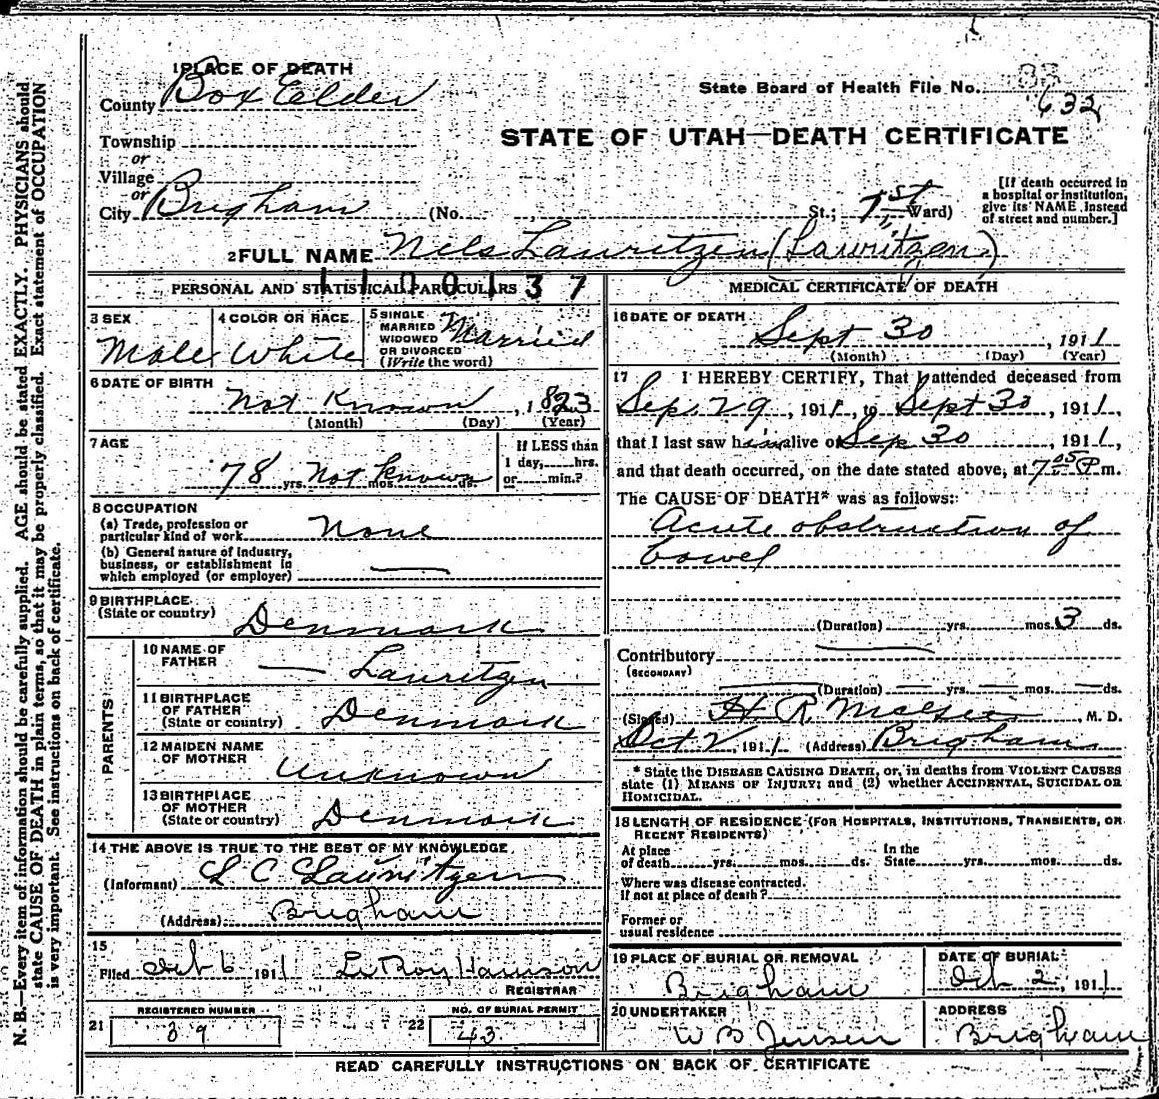 N. B.—Every item of information should be carefully supplied. AGE should be stated EXACTLY. PHYSICIANS should
state CAUSE OF DEATH in plain terms, so that it may be properly classified. Exact statement of OCCUPATION
is very important. See instructions on back of certificate.
1 PLACE OF DEATH
County Box Elder
State Board of Health File No. 632
STATE OF UTAH—DEATH CERTIFICATE
Township
or
Village
or
City Brigham (No. , St.; 1st Ward)
[If death occurred in
a hospital or institution,
give its NAME instead
of street and number.]
2 FULL NAME Nels Lauritzen (Lauritzen)
PERSONAL AND STATISTICAL PARTICULARS
3 SEX
Male
4 COLOR OR RACE
White
5 SINGLE
MARRIED
WIDOWED
OR DIVORCED
(Write the word)
Married
6 DATE OF BIRTH
Not Known , 1823
(Month) (Day) (Year)
7 AGE
78 yrs. Not Known mos. ds.
If LESS than
1 day, hrs.
or min.?
8 OCCUPATION
(a) Trade, profession or
particular kind of work None
(b) General nature of industry,
business, or establishment in
which employed (or employer)
9 BIRTHPLACE
(State or country)
Denmark
PARENTS
10 NAME OF
FATHER
Lauritzen
11 BIRTHPLACE
OF FATHER
(State or country) Denmark
12 MAIDEN NAME
OF MOTHER
Unknown
13 BIRTHPLACE
OF MOTHER
(State or country) Denmark
14 THE ABOVE IS TRUE TO THE BEST OF MY KNOWLEDGE
(Informant) L C Lauritzen
(Address) Brigham
15
Filed Oct 6 1911 LeRoy Harrison
REGISTRAR
REGISTERED NUMBER
21 39
NO. OF BURIAL PERMIT
22 43
MEDICAL CERTIFICATE OF DEATH
16 DATE OF DEATH
Sept 30 , 1911
(Month) (Day) (Year)
17 I HEREBY CERTIFY, That I attended deceased from
Sep. 29, 1911, to Sept 30, 1911,
that I last saw him alive on Sep 30, 1911,
and that death occurred, on the date stated above, at 7 05 P m.
The CAUSE OF DEATH* was as follows:
Acute obstruction of
bowel
(Duration) yrs. mos. 3 ds.
Contributory
(SECONDARY)
(Duration) yrs. mos. ds.
(Signed) H. R. , M. D.
Oct 2, 1911 (Address) Brigham
* State the DISEASE CAUSING DEATH, or, in deaths from VIOLENT CAUSES
state (1) MEANS OF INJURY; and (2) whether ACCIDENTAL, SUICIDAL OR
HOMICIDAL.
18 LENGTH OF RESIDENCE (FOR HOSPITALS, INSTITUTIONS, TRANSIENTS, OR
RECENT RESIDENTS)
At place
of death yrs. mos. ds.
In the
State yrs. mos. ds.
Where was disease contracted.
If not at place of death?
Former or
usual residence
19 PLACE OF BURIAL OR REMOVAL
Brigham
DATE OF BURIAL
Oct 2, 1911
20 UNDERTAKER
W B Jensen
ADDRESS
Brigham
READ CAREFULLY INSTRUCTIONS ON BACK OF CERTIFICATE